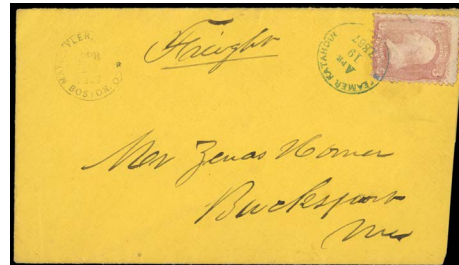 Freight
STEAMER KATAHDIN
APR
19
1867
BOSTON
Mr Zenas Homer
Bucksport
Me